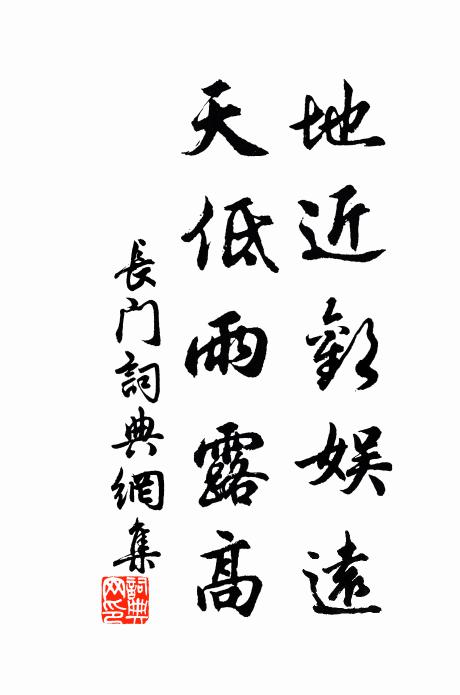 地近歡娱遠
天低雨露高
長门詞典網集
詞典网印